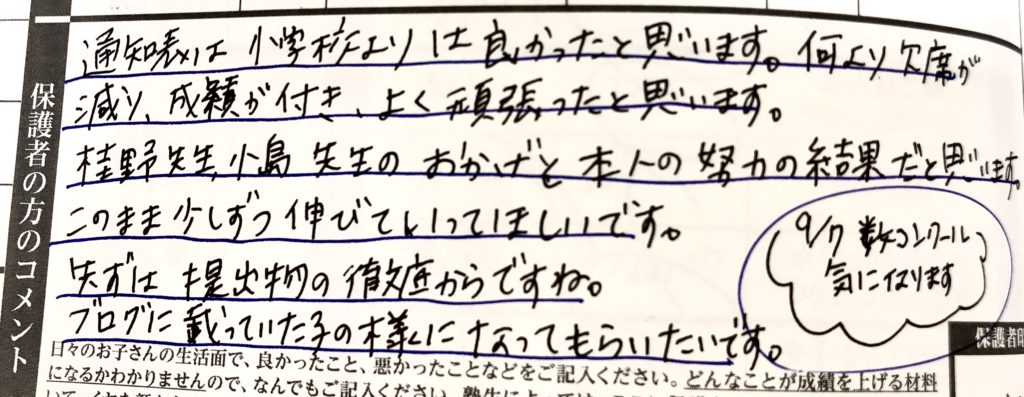 保護者の方のコメント
通知表は小学校よりは良かったと思います。何より欠席が
減り、成績が付き、よく頑張ったと思います。
桂野先生、小島先生のおかげと本人の努力の結果だと思います。
このまま少しずつ伸びていってほしいです。
先ずは提出物の徹底からですね。
ブログに載っていた子の様になってもらいたいです。
9/7 数コンクール
気になります
保護者印
日々のお子さんの生活面で、良かったこと、悪かったことなどをご記入ください。どんなことが成績を上げる材料
になるかわかりませんので、なんでもご記入ください。